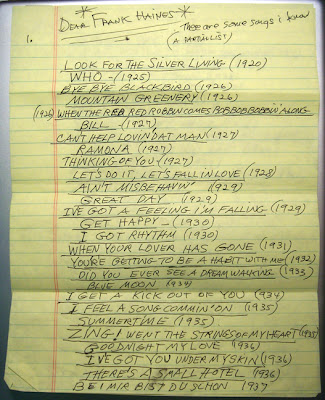 *DEAR FRANK HAINES*
THESE ARE SOME SONGS I KNOW
1.
(A PARTIAL LIST)
LOOK FOR THE SILVER LINING (1920)
WHO - (1925)
BYE BYE BLACKBIRD (1926)
MOUNTAIN GREENERY (1926)
(1926) WHEN THE RED RED ROBBIN COMES BOB BOB BOBBIN' ALONG
BILL - (1927)
CAN'T HELP LOVIN DAT MAN (1927)
RAMONA (1927)
THINKING OF YOU (1927)
LET'S DO IT, LET'S FALL IN LOVE (1928)
AIN'T MISBEHAVIN' (1929)
GREAT DAY (1929)
I'VE GOT A FEELING I'M FALLING (1929)
GET HAPPY - (1930)
I GOT RHYTHM (1930)
WHEN YOUR LOVER HAS GONE (1931)
YOU'RE GETTING TO BE A HABIT WITH ME (1932)
DID YOU EVER SEE A DREAM WALKING (1933)
BLUE MOON (1934)
I GET A KICK OUT OF YOU (1934)
I FEEL A SONG COMMIN' ON (1935)
SUMMERTIME (1935)
ZING! WENT THE STRINGS OF MY HEART (1935)
GOODNIGHT MY LOVE (1936)
I'VE GOT YOU UNDER MY SKIN (1936)
THERE'S A SMALL HOTEL (1936)
BEI MIR BIST DU SCHON 1937